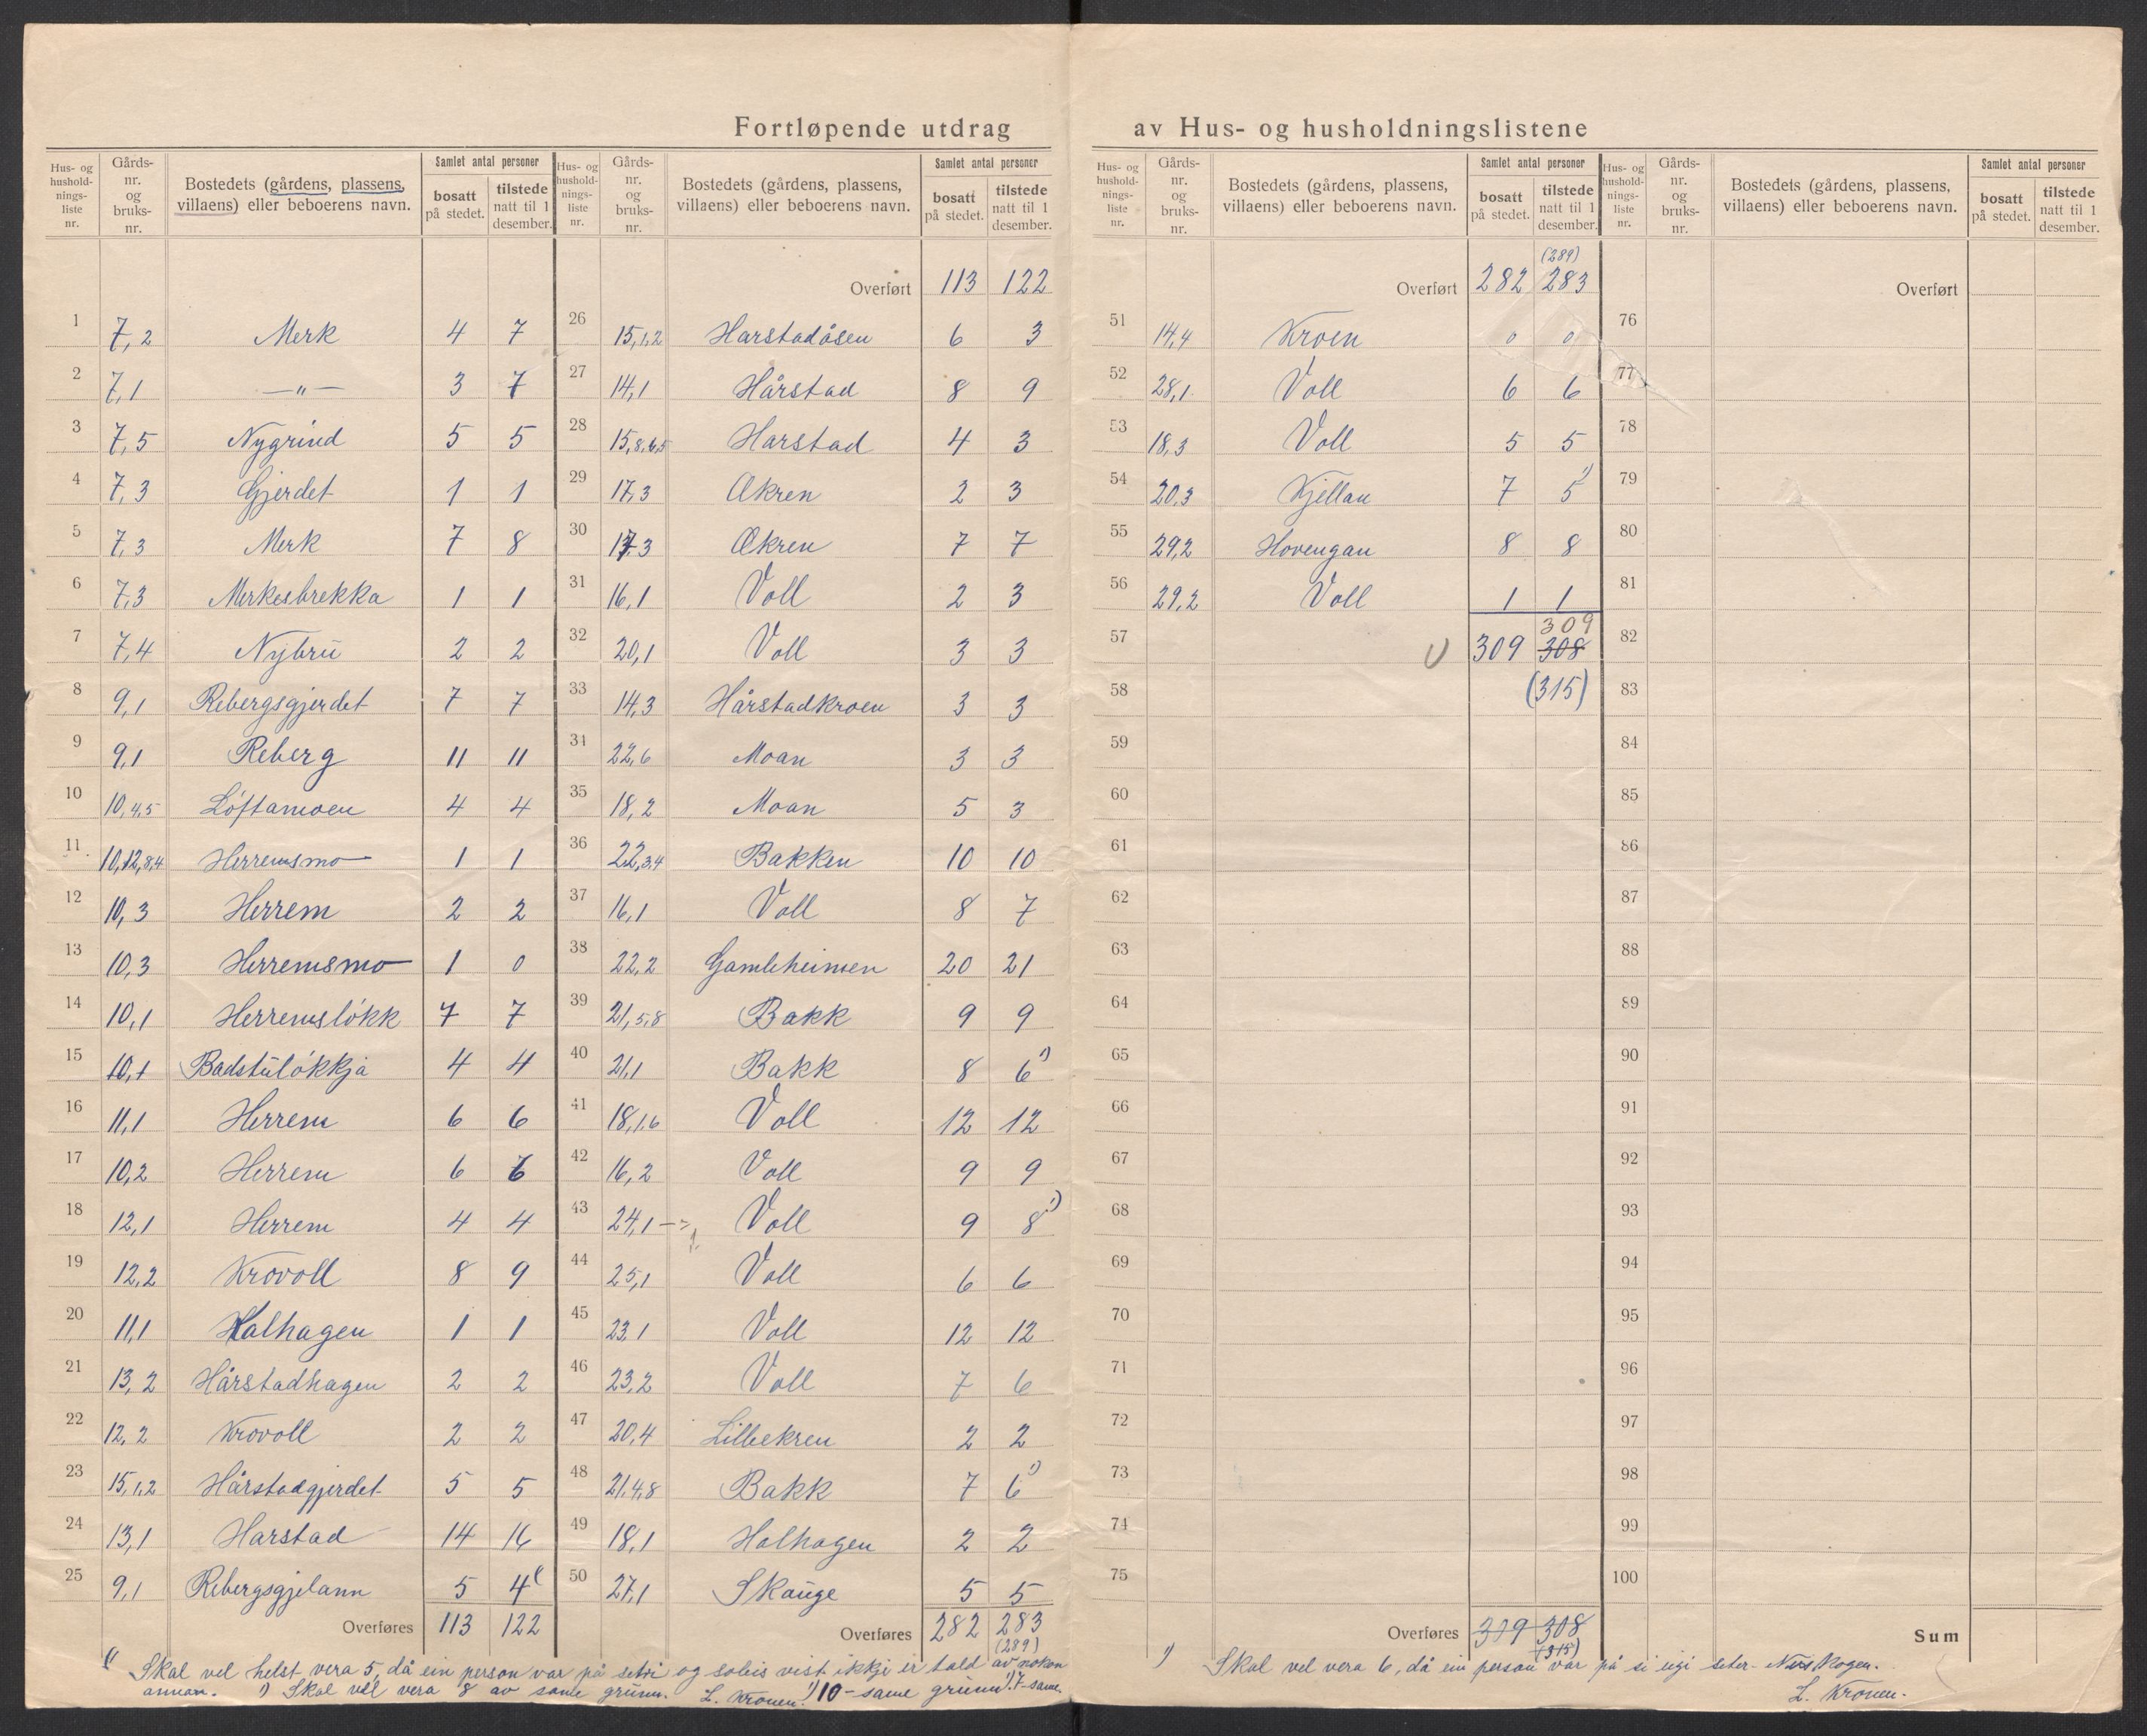 Fortløpende utdrag av Hus- og husholdningslistene
Hus- og hushold- nings- liste nr. | Gårds- nr. og bruks- nr. | Bostedets (gårdens, plassens, villaens) eller beboerens navn. | Samlet antal personer | bosatt på stedet. | tilstede natt til 1 desember.
1 7,2 Merk 4 7
2 7,1 —"— 3 7
3 7,5 Nygrind 5 5
4 7,3 Gjerdet 1 1
5 7,3 Merk 7 8
6 7,3 Merkesbrekka 1 1
7 7,4 Nybru 2 2
8 9,1 Rebergsgjerdet 7 7
9 9,1 Reberg 11 11
10 10,4,5 Löftamoen 4 4
11 10,12,8,4 Herremsmo 1 1
12 10,3 Herrem 2 2
13 10,3 Herremsmo 1 0
14 10,1 Herremslökk 7 7
15 10,1 Badstulökkja 4 4
16 11,1 Herrem 6 6
17 10,2 Herrem 6 6
18 12,1 Herrem 4 4
19 12,2 Krovoll 8 9
20 11,1 Kalhagen 1 1
21 13,2 Hårstadhagen 2 2
22 12,2 Krovoll 2 2
23 15,1,2 Hårstadgjerdet 5 5
24 13,1 Harstad 14 16
25 9,1 Rebergsgjelann 5 4
Overføres 113 122
Hus- og hushold- nings- liste nr. | Gårds- nr. og bruks- nr. | Bostedets (gårdens, plassens, villaens) eller beboerens navn. | Samlet antal personer | bosatt på stedet. | tilstede natt til 1 desember.
Overført 113 122
26 15,1,2 Harstadåsen 6 3
27 14,1 Hårstad 8 9
28 15,8,6,5 Harstad 4 3
29 17,3 Ækren 2 3
30 17,3 Ækren 7 7
31 16,1 Voll 2 3
32 20,1 Voll 3 3
33 14,3 Hårstadkroen 3 3
34 22,6 Moan 3 3
35 18,2 Moan 5 3
36 22,3,4 Bakken 10 10
37 16,1 Voll 8 7
38 22,2 Gamleheimen 20 21
39 21,5,8 Bakk 9 9
40 21,1 Bakk 8 6 1)
41 18,1,6 Voll 12 12
42 16,2 Voll 9 9
43 24,1 Voll 9 8 1)
44 25,1 Voll 6 6
45 23,1 Voll 12 12
46 23,2 Voll 7 6
47 20,4 Lilleekren 2 2
48 21,4,8 Bakk 7 6 1)
49 18,1 Halhagen 2 2
50 27,1 Skauge 5 5
Overføres 282 283
(289)
Hus- og hushold- nings- liste nr. | Gårds- nr. og bruks- nr. | Bostedets (gårdens, plassens, villaens) eller beboerens navn. | Samlet antal personer | bosatt på stedet. | tilstede natt til 1 desember.
(289)
Overført 282 283
51 14,4 Kroen 0 0
52 28,1 Voll 6 6
53 18,3 Voll 5 5
54 20,3 Kjellau 7 5 1)
55 29,2 Hovengan 8 8
56 29,2 Voll 1 1
309
57 309 308
58 (315)
59
60
61
62
63
64
65
66
67
68
69
70
71
72
73
74
75
Overføres 309 308
(315)
Hus- og hushold- nings- liste nr. | Gårds- nr. og bruks- nr. | Bostedets (gårdens, plassens, villaens) eller beboerens navn. | Samlet antal personer | bosatt på stedet. | tilstede natt til 1 desember.
Overført
76
77
78
79
80
81
82
83
84
85
86
87
88
89
90
91
92
93
94
95
96
97
98
99
100
Sum
Skal vel helst vera 5, då ein person var på setri og soleis vist ikkje er tald av nokon
annan. 1) Skal vel vera 8 av same grunn. L. Kronen. 1) 10 - same grunn. 7 - same.
1) Skal vel vera 6, då ein person var på si eigi seter
L. Kronen.